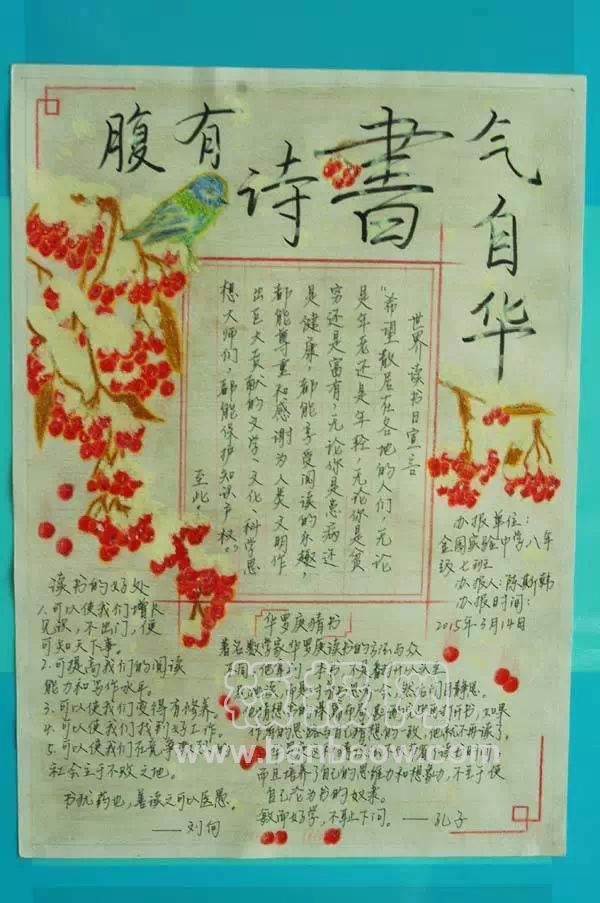 腹有
诗
書
气自华
世界读书日宣言
“希望散居在各地的人们,无论
是年老还是年轻,无论你是贫
穷还是富有,无论你是患病还
是健康,都能享受阅读的乐趣,
都能尊重和感谢为人类文明作
出巨大贡献的文学、文化、科学思
想大师们,都能保护知识产权。”
至此。
办报单位:
金园实验中学八年
级七班
办报人:陈斯韩
办报时间:
2015年3月14日
读书的好处
1.可以使我们增长
见识,不出门,便
可知天下事。
2.可提高我们的阅读
能力和写作水平。
3.可以使我们变得有修养。
4.可以使我们找到好工作。
5.可以使我们在竞争
社会立于不败之地。
书犹药也,善读之可以医愚。
——刘向
华罗庚猜书
著名数学家华罗庚读书的方法与众
不同。他拿到一本书,不是翻开从头至
尾地读,而是对着书思考一会,然后闭目静思。
他猜想书的
作者的思路与自己猜想的一致,他就不再读了。
而且培养了自己的思维力和想象力,不至于使
自己沦为书的奴隶。
敏而好学,不耻下问。——孔子
www.banbaow.com